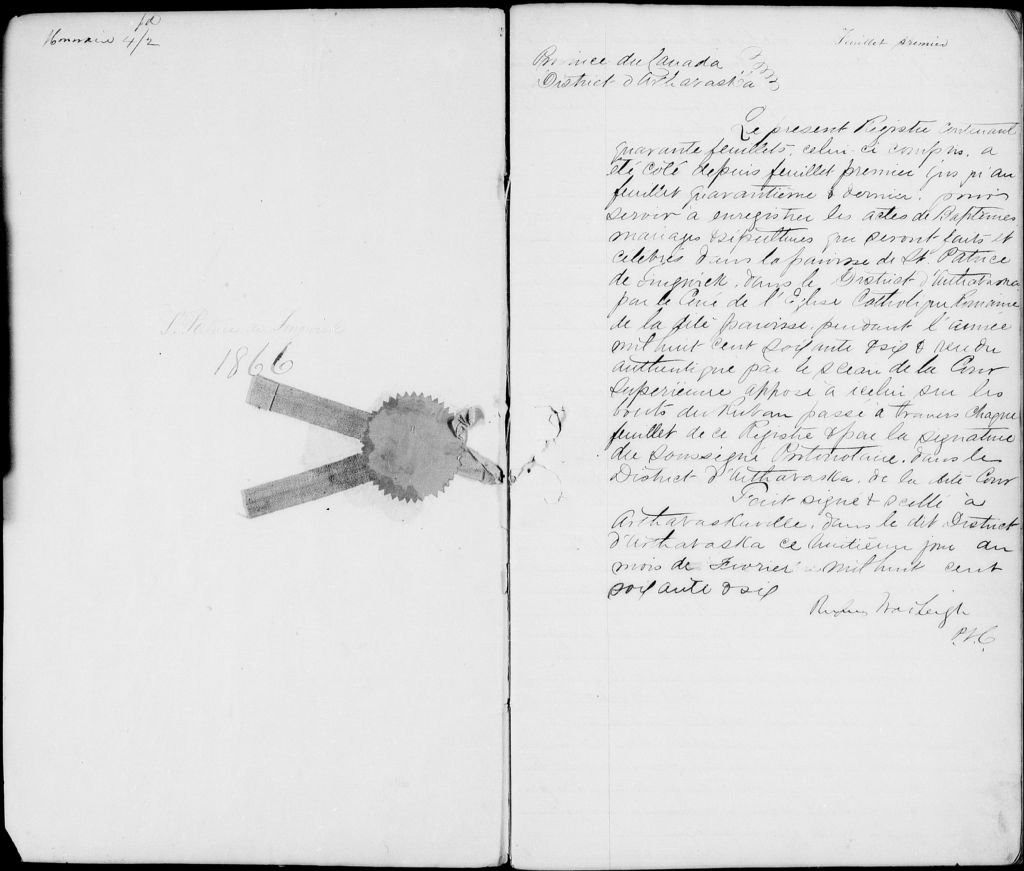 Honoraire 4/2 d
St Patrice de Tingwick
1866
Feuillet premier
Province du Canada
District d'Arthabaska
Le présent Registre contenant
quarante feuillets, celui-ci compris, a
été côté depuis feuillet premier jusqu'au
feuillet quarantième & dernier, pour
servir à enregistrer les actes de Baptêmes
mariages & sépultures qui seront faits et
célébrés dans la paroisse de St. Patrice
de Tingwick, dans le District d'Arthabaska
par le Curé de l'Eglise Catholique Romaine
de la dité paroisse, pendant l'année
mil huit cent soixante & six & rendu
authentique par le sceau de la Cour
Supérieure apposé à icelui sur les
bouts du Ruban passé à travers chaque
feuillet de ce Registre & par la signature
du soussigné Protonotaire, dans le
District d'Arthabaska, de la dité Cour
Fait signé & scellé à
Arthabaskaville, dans le dit District
d'Arthabaska ce huitième jour du
mois de Fevrier mil huit cent
soixante & six
P.S.C.